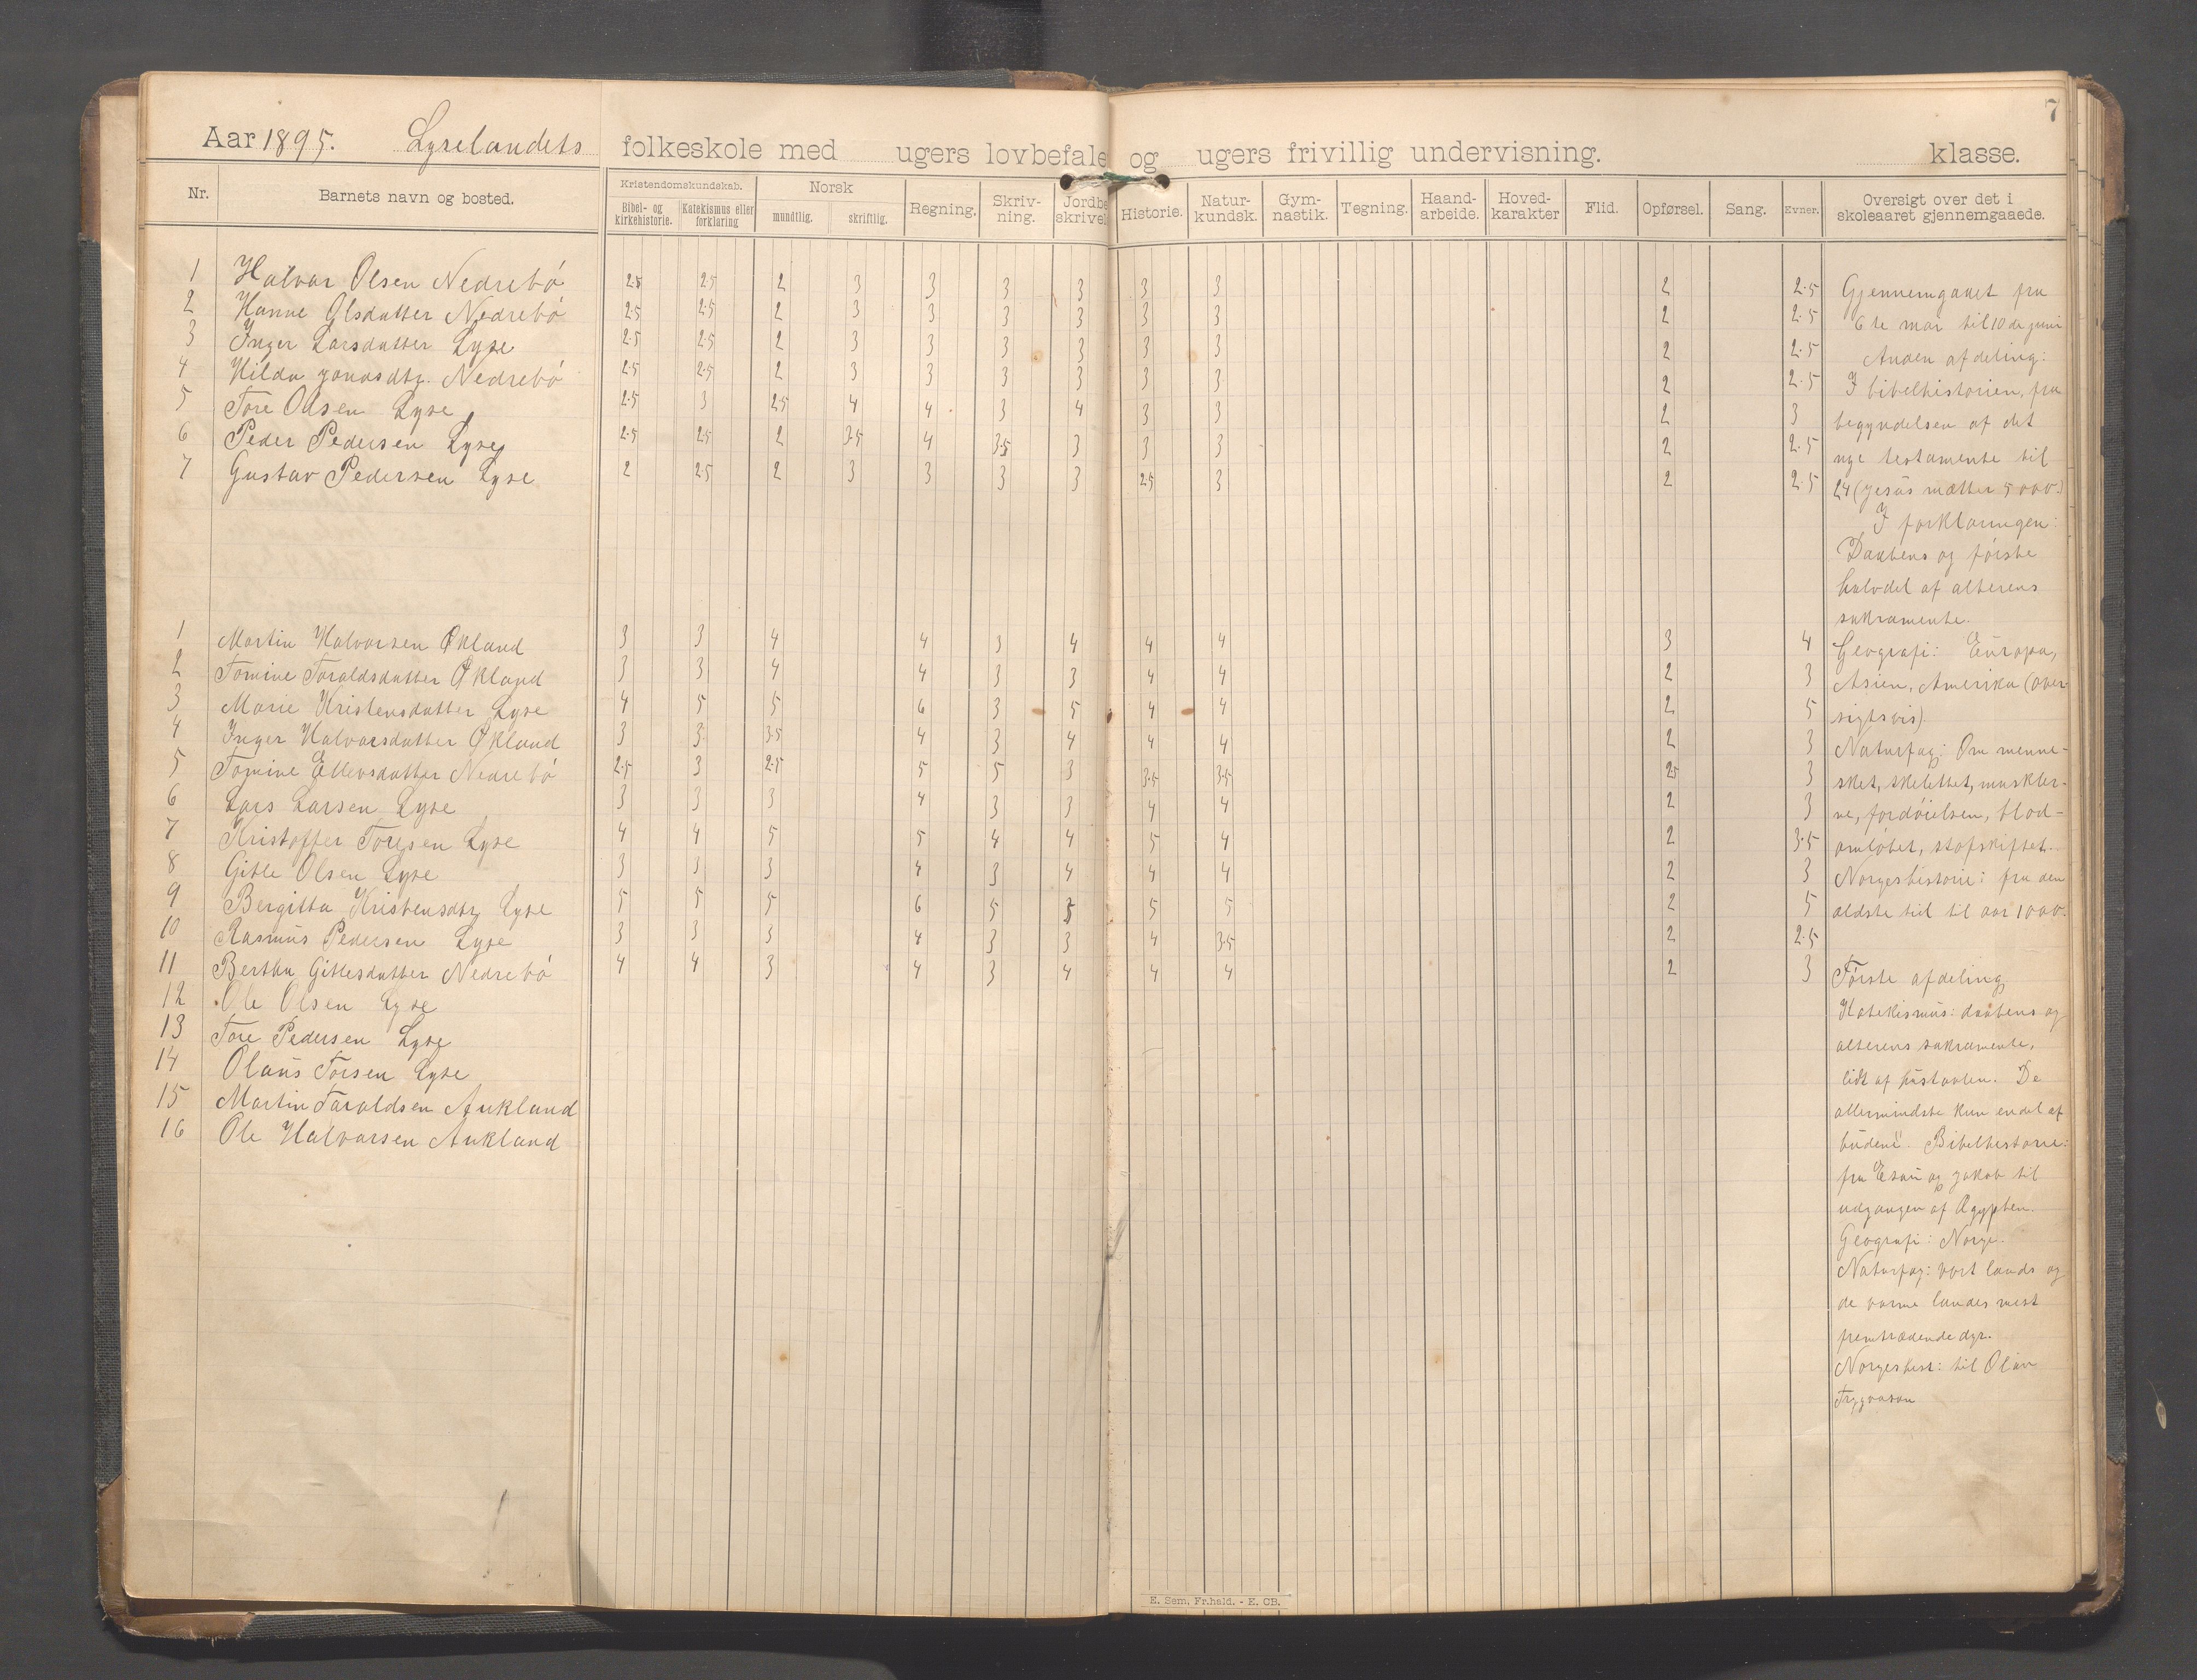 7
Aar 1895. Lyselandets folkeskole med ugers lovbefale og ugers frivillig undervisning. klasse.
Nr. Barnets navn og bosted. Kristendomskundskab. Bibel- og kirkehistorie. Katekismus eller forklaring Norsk mundtlig. skriftlig. Regning. Skriv-ning. Jordbe skrivel Historie. Natur-kundsk. Gym-nastik. Tegning. Haand-arbeide. Hoved-karakter Flid. Opførsel. Sang. Evner. Oversigt over det i skoleaaret gjennemgaaede.
1 Halvar Olsen Nedrebó 2·5 2·5 2 3 3 3 3 3 3 2 2·5
2 Hanne Olsdatter Nedrebó 2·5 2·5 2 3 3 3 3 3 3 2 2·5
3 Inger Larsdatter Lyse 2·5 2·5 2 3 3 3 3 3 3 2 2·5
4 Hilda Jonasdtr. Nedrebó 2·5 2·5 2 3 3 3 3 3 3 2 2·5
5 Tore Olsen Lyse 2·5 3 2·5 4 4 3 4 3 3 2 3
6 Peder Pedersen Lyse 2·5 2·5 2 3·5 4 3·5 3 3 3 2 2·5
7 Gustav Pedersen Lyse 2 2·5 2 3 3 3 3 2·5 3 2 2·5
1 Martin Halvorsen Økland 3 3 4 4 3 4 4 4 3 4
2 Tomine Toraldsdatter Økland 3 3 4 4 3 3 4 4 2 3
3 Marie Kristensdatter Lyse 4 5 5 6 3 5 4 4 2 5
4 Inger Halvarsdatter Økland 3 3 3·5 4 3 4 4 4 2 3
5 Tomine Ellevsdatter Nedrebó 2·5 3 2·5 5 5 3 3·5 3·5 2·5 3
6 Lars Larsen Lyse 3 3 3 4 3 3 4 4 2 3
7 Kristoffer Toresen Lyse 4 4 5 5 4 4 5 4 2 3·5
8 Gitle Olsen Lyse 3 3 3 4 3 4 4 4 2 3
9 Bergitta Kristensdtr Lyse 5 5 5 6 5 5 5 5 2 5
10 Rasmus Pedersen Lyse 3 3 3 4 3 3 4 3·5 2 2·5
11 Bertha Gitlesdatter Nedrebó 4 4 3 4 3 4 4 4 2 3
12 Ole Olsen Lyse
13 Tore Pedersen Lyse
14 Olaus Torsen Lyse
15 Martin Taraldsen Aukland
16 Ole Halvarsen Aukland
Gjennemgaaet fra
6te mar til 10de juni
Anden afdeling:
I bibelhistorien, fra
begyndelsen af det
nye testamente til
24 (Jesus mætter 5000.)
I forklaringen:
Daabens og første
halvdel af alterens
sakramente.
Geografi: Europa,
Asien, Amerika (over-
sigtsvis).
Naturfag: Om menne-
sket, skelettet, muskler-
ne, fordøielsen, blod-
omløbet, stofskiftet.
Norgeshistorie: fra den
ældste tid til aar 1000.
Første afdeling
Katekismus: daabens og
alterens sakramente,
lidt af hustavlen. De
allermindste kun endel af
budene. Bibelhistorie:
fra Esau og Jakob til
udgangen af Ægypten.
Geografi: Norge.
Naturfag: vort lands og
de varme landes mest
fremtrædende dyr.
Norgeshist: til Olav
Trygvason
E. Sem, Fr.hald. - E. CB.